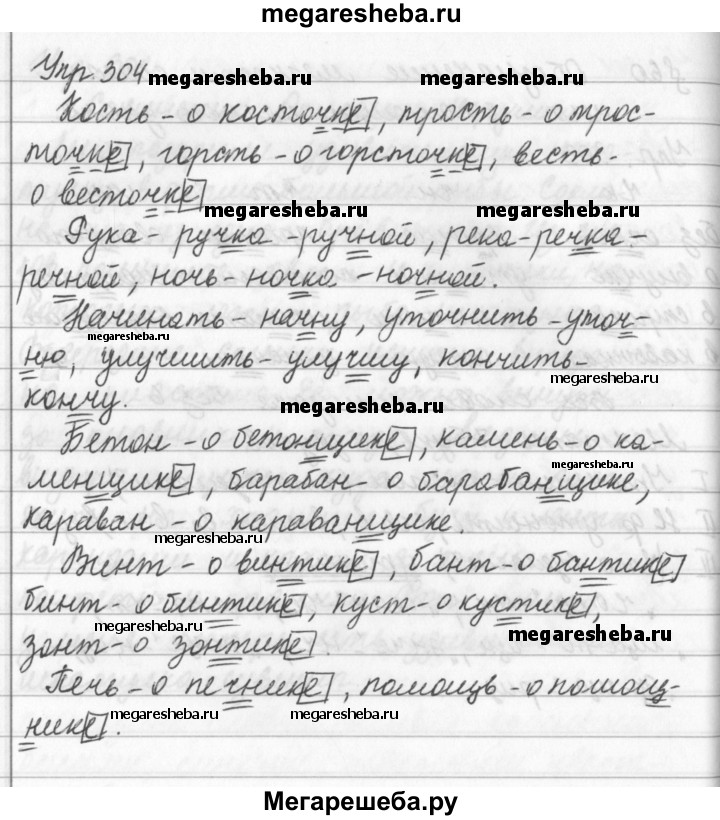 megaresheba.ru
Упр. 304 megaresheba.ru megaresheba.ru
Кость - о косточке, трость - о трос-
точке, горсть - о горсточке, весть -
о весточке megaresheba.ru megaresheba.ru
Рука - ручка - ручной, река - речка -
речной, ночь - ночка - ночной.
Начинать - начну, уточнить - уточ-
megaresheba.ru
ню, улучшить - улучшу, кончить -
megaresheba.ru
кончу. megaresheba.ru
Бетон - о бетонщике, камень - о ка-
megaresheba.ru
менщике, барабан - о барабанщике,
караван - о караванщике.
megaresheba.ru
Винт - о винтике, бант - о бантике
бинт - о бинтике, куст - о кустике,
megaresheba.ru megaresheba.ru
зонт - о зонтике.
Печь - о печнике, помощь - о помощ-
нике. megaresheba.ru megaresheba.ru
Мегарешеба.ру